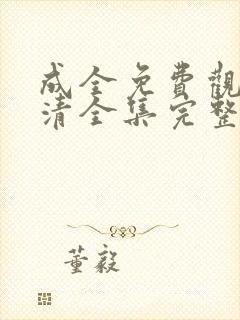 成全免費觀
清全集完整
董毅